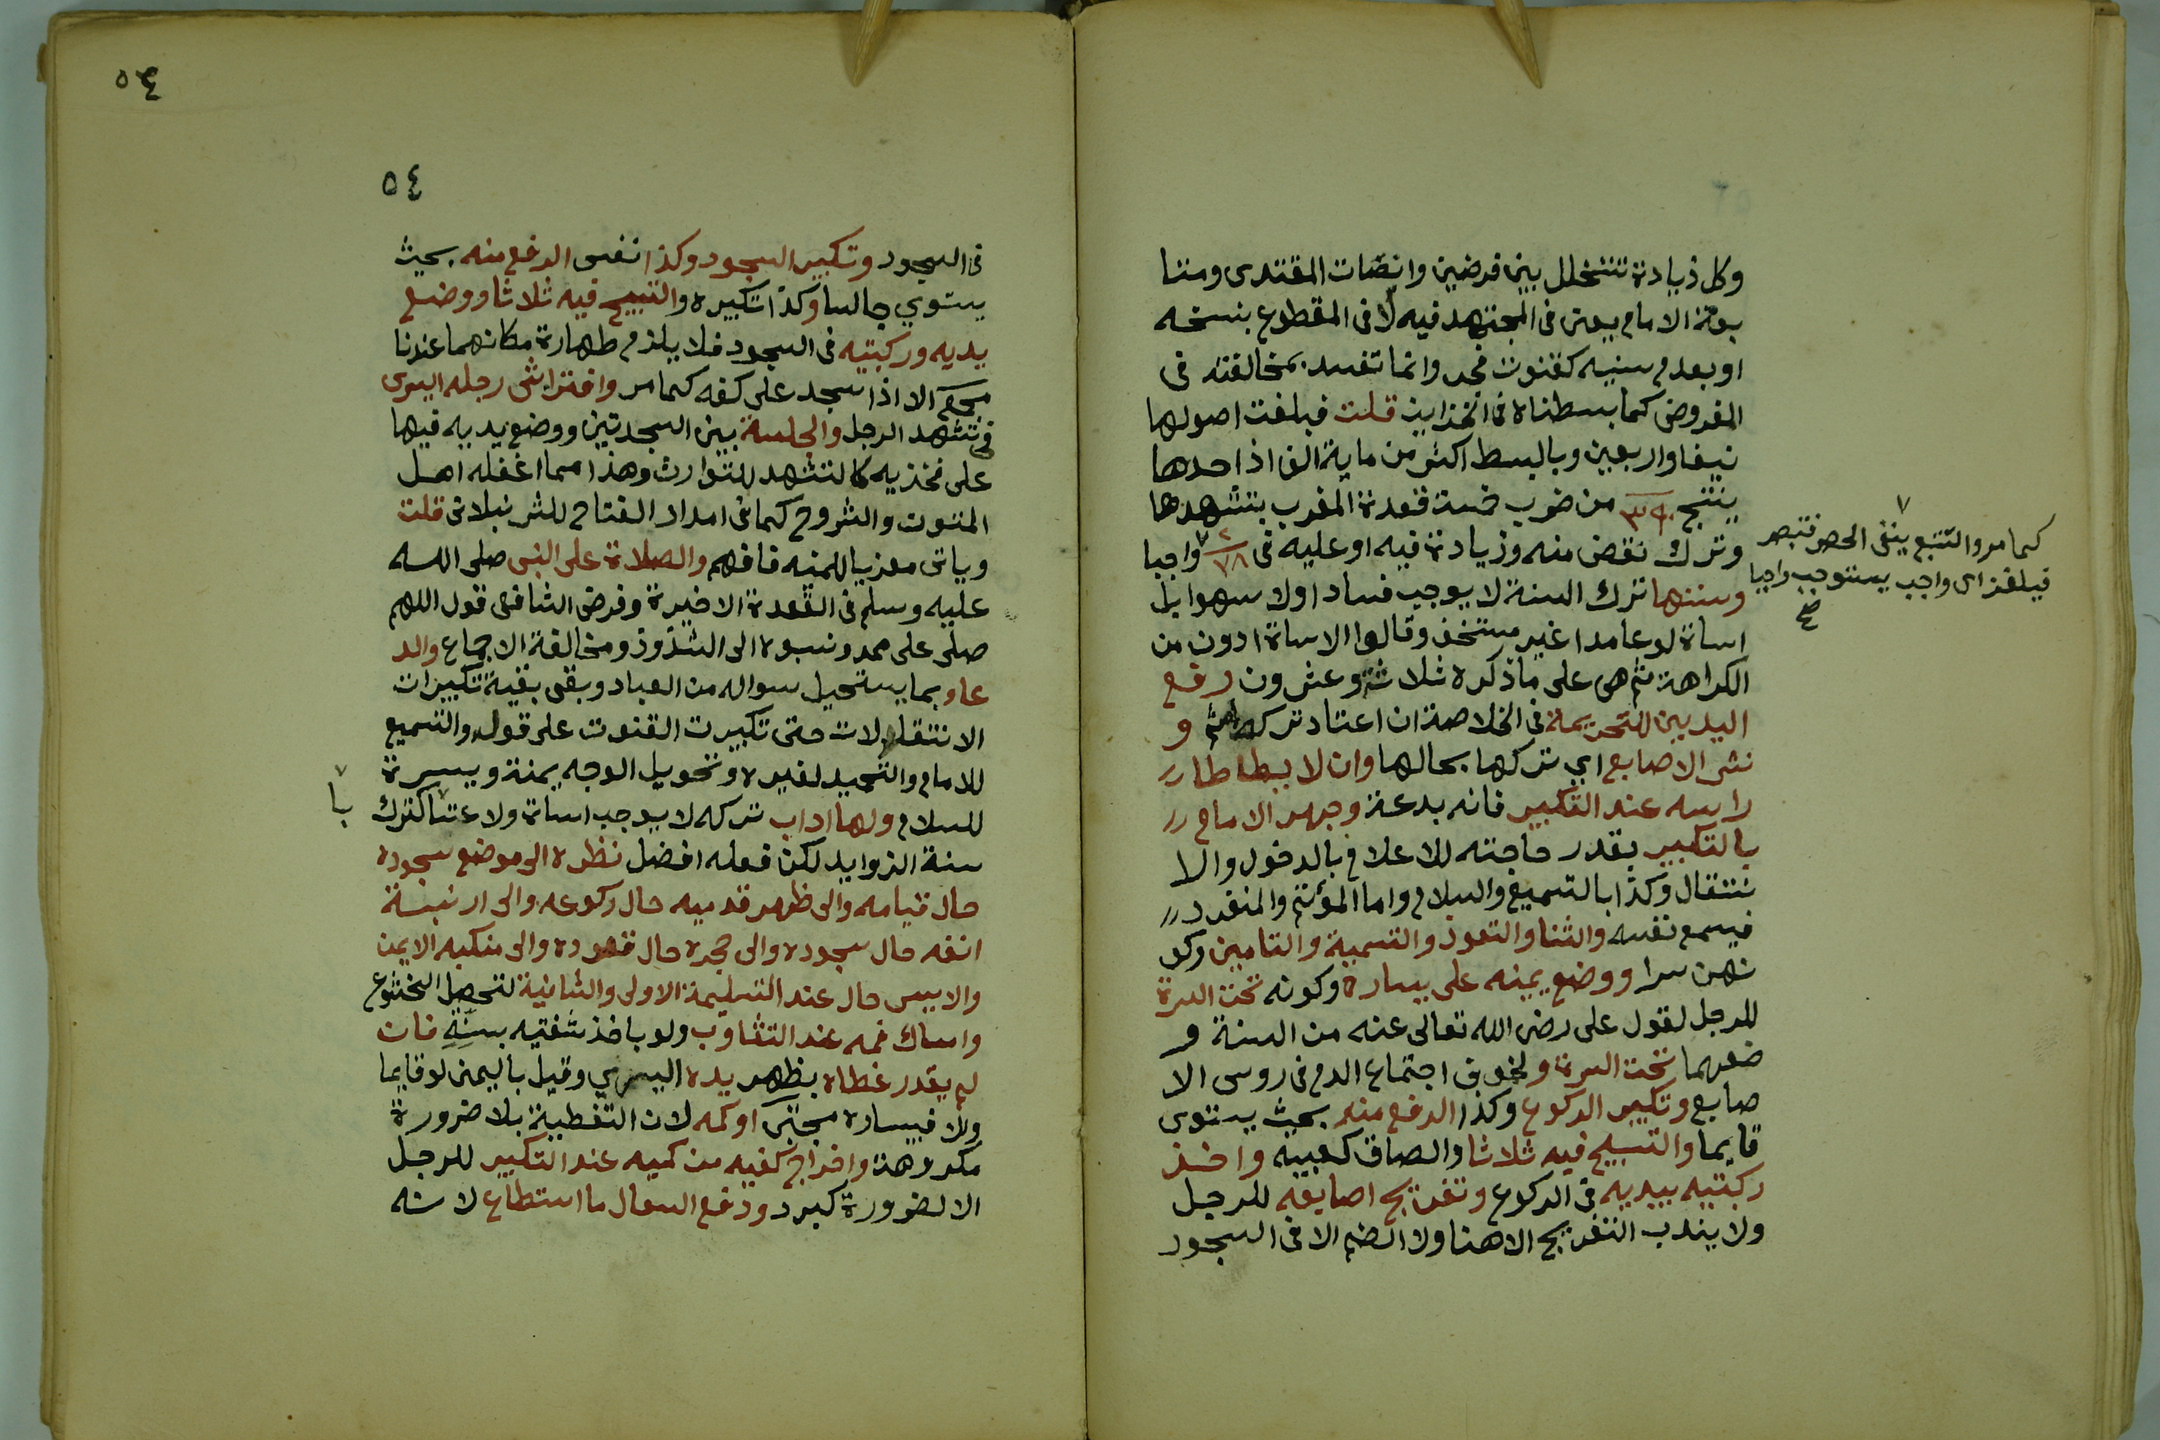 وكل زيادة تتخلل بين فرضين وانصات المقتدى ومتا
بعة الامام يعنى فى المجتهد فيه لا فى المقطوع بنسخه
او بعدم سنيه كقنوت فجر وانما تفسد بمخالفته فى
الفروض كما بسطناه فى الخزاين قلت فبلغت اصولها
نيفا واربعين وبالبسط اكثر من ماية الف اذ احدها
ينتج ٣٩٠ من ضرب خمسة قعدة المغرب بتشهدها
وترك نقص منه وزيادة فيه او عليه فى ٧٨ واجبا
وسننها ترك السنة لا يوجب فسادا ولا سهوا بل
اساة لو عامدا غير مستخف وقالوا الاساة ادون من
الكراهة ثم هى على ما ذكره ثلاثة وعشرون رفع
اليدين للتحريمة فى الخلاصة ان اعتاد تركه اثم و
نشر الاصابع اي تركها بحالها وان لا يطاطا ر
راسه عند التكبير فانه بدعة وجهر الامام
بالتكبير بقدر حاجته للاعلام بالدخول والا
نتقال وكذا بالتسميع والسلام واما المؤتم والمنفرد
فيسمع نفسه والثنا والتعوذ والتسمية والتامين وكو
نهن سرا ووضع يمينه على يساره وكونه تحت السرة
للرجل لقول على رضى الله تعالى عنه من السنة و
ضعهما تحت السرة ولخوف اجتماع الدم فى روس الا
صابع وتكبير الركوع وكذا الرفع منه بحيث يستوى
قايما والتسبيح فيه ثلاثا والصاق كعبيه واخذ
ركبتيه بيديه فى الركوع وتفريج اصابعه للرجل
ولا يندب التفريج الا هنا ولا الضم الا فى السجود
٧
كما مر والتتبع ينفى الحصر فتبصر
فيلغز اى واجب يستوجب واجبا
صح
٥٤
٥٤
فى السجود وتكبير السجود وكذا نفس الرفع منه بحيث
يستوي جالسا وكذا تكبيره والتسبيح فيه ثلاثا ووضع
يديه وركبتيه فى السجود فلا يلزم طهارة مكانهما عندنا
مجمع الا اذا سجد على كفه كما مر وافتراش رجله اليسرى
فى تشهد الرجل والجلسة بين السجدتين ووضع يديه فيها
على فخذيه كالتشهد للتوارث وهذا مما اغفله اهل
المتون والشروح كما فى امداد الفتاح للشرنبلالى قلت
وياتى معزيا للمنيه فافهم والصلاة على النبى صلى الله
عليه وسلم فى القعدة الاخيرة وفرض الشافعى قول اللهم
صلى على محمد ونسبوه الى الشذوذ ومخالفة الاجماع والد
عاء بما يستحيل سواله من العباد وبقى بقية تكبيرات
الانتقالات حتى تكبيرت القنوت على قول والتسميع
للامام والتحميد لغيره وتحويل الوجه يمنة ويسرة
للسلام ولها اداب تركه لا يوجب اساة ولا عتا كترك
٧
با
سنة الزوايد لكن فعله افضل نظره الى موضع سجوده
حال قيامه والى ظهر قدميه حال ركوعه والى ارنبة
انفه حال سجوده والى حجره حال قعوده والى منكبه الايمن
والايسر حال عند التسليمة الاولى والثانية لتحصل الخشوع
وامساك فمه عند التثاوب ولو باخذ شفتيه بسنه فان
لم يقدر غطاه بظهر يده اليسري وقيل باليمنى لو قايما
والا فيساره مجتبى او كمه لان التغطية بلا ضرورة
مكروهة واخراج كفيه من كميه عند التكبير للرجل
الا لضرورة كبرد ودفع السعال ما استطاع لانه